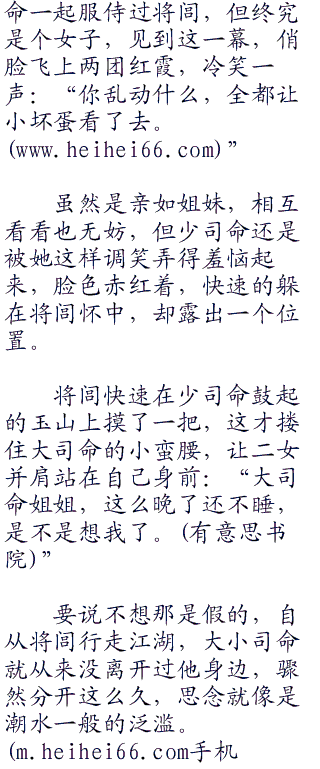 命一起服侍过将闾，但终究
是个女子，见到这一幕，俏
脸飞上两团红霞，冷笑一
声：“你乱动什么，全都让
小坏蛋看了去。
(www.heihei66.com)”
虽然是亲如姐妹，相互
看看也无妨，但少司命还是
被她这样调笑弄得羞恼起
来，脸色赤红着，快速的躲
在将闾怀中，却露出一个位
置。
将闾快速在少司命鼓起
的玉山上摸了一把，这才搂
住大司命的小蛮腰，让二女
并肩站在自己身前：“大司
命姐姐，这么晚了还不睡，
是不是想我了。(有意思书
院)”
要说不想那是假的，自
从将闾行走江湖，大小司命
就从来没离开过他身边，骤
然分开这么久，思念就像是
潮水一般的泛滥。
(m.heihei66.com手机